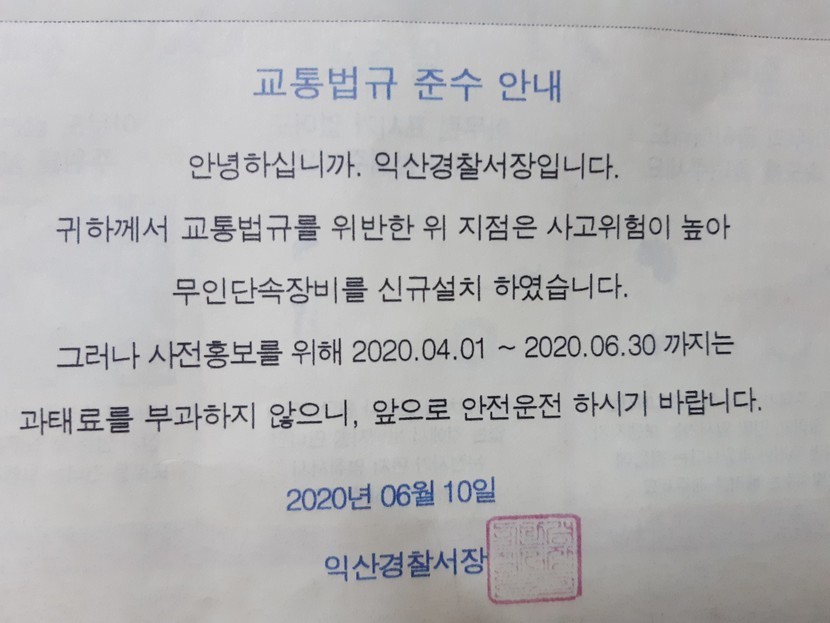 교통법규 준수 안내
안녕하십니까. 익산경찰서장입니다.
귀하께서 교통법규를 위반한 위 지점은 사고위험이 높아
무인단속장비를 신규설치 하였습니다.
그러나 사전홍보를 위해 2020.04.01 ~ 2020.06.30 까지는
과태료를 부과하지 않으니, 앞으로 안전운전 하시기 바랍니다.
2020년 06월 10일
익산경찰서장